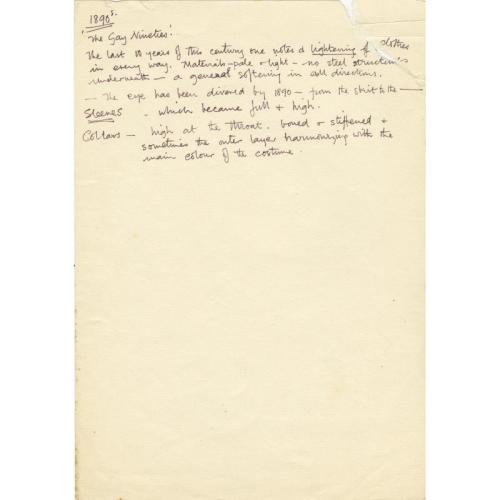 1890s.
'The Gay Nineties.'
The last 10 years of this century one notes a lightening of clothes
in every way. Materials - pale & light - no steel structures
underneath - a general softening in all directions.
- The eye has been divered by 1890 - from the skirt to the -
Sleeves - which became full & high.
Collars - high at the throat. boned or stiffened &
sometimes the outer layer harmonizing with the
main colour of the costume.